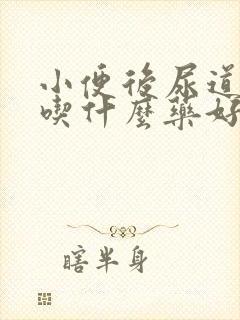 小便後尿道
喫什麼藥好
瞎半身